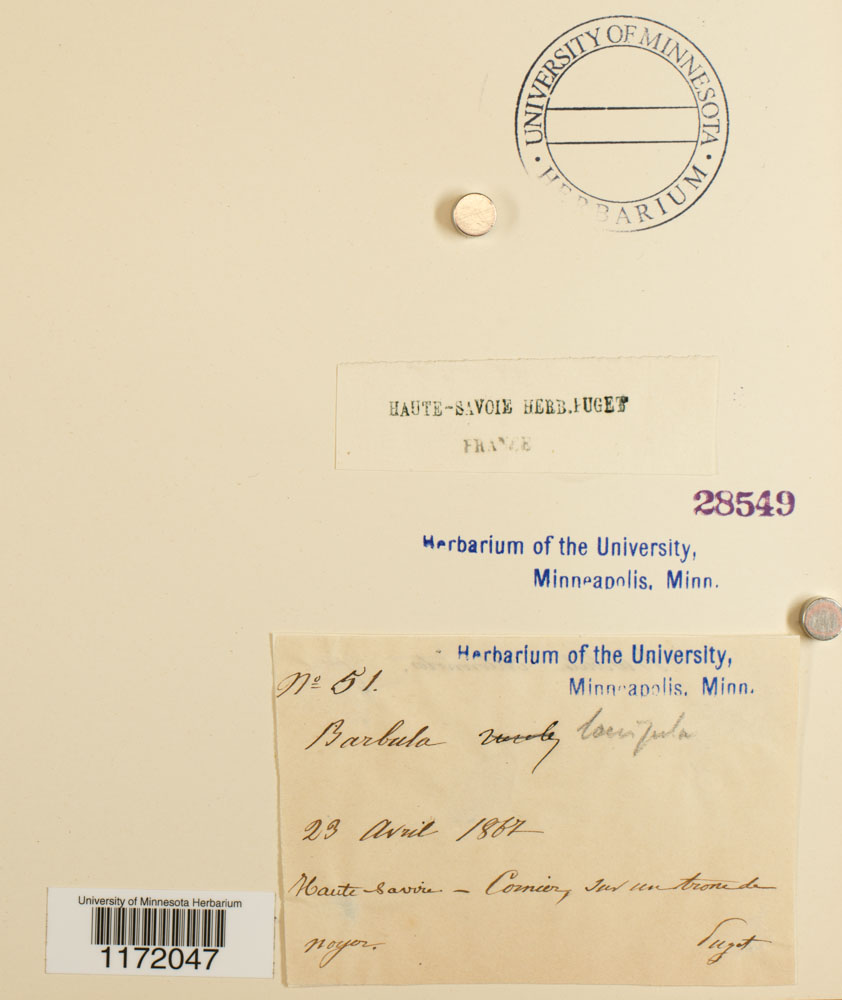 UNIVERSITY OF MINNESOTA
• HERBARIUM •
HAUTE-SAVOIE HERB.PUGET
FRANCE
28549
Herbarium of the University,
Minneapolis, Minn.
Herbarium of the University,
Minneapolis, Minn.
Nº 51.
Barbula laevipula
23 Avril 1867
Haute-Savoie - Cornier, sur un tronc de
noyer.
Puget
University of Minnesota Herbarium
1172047